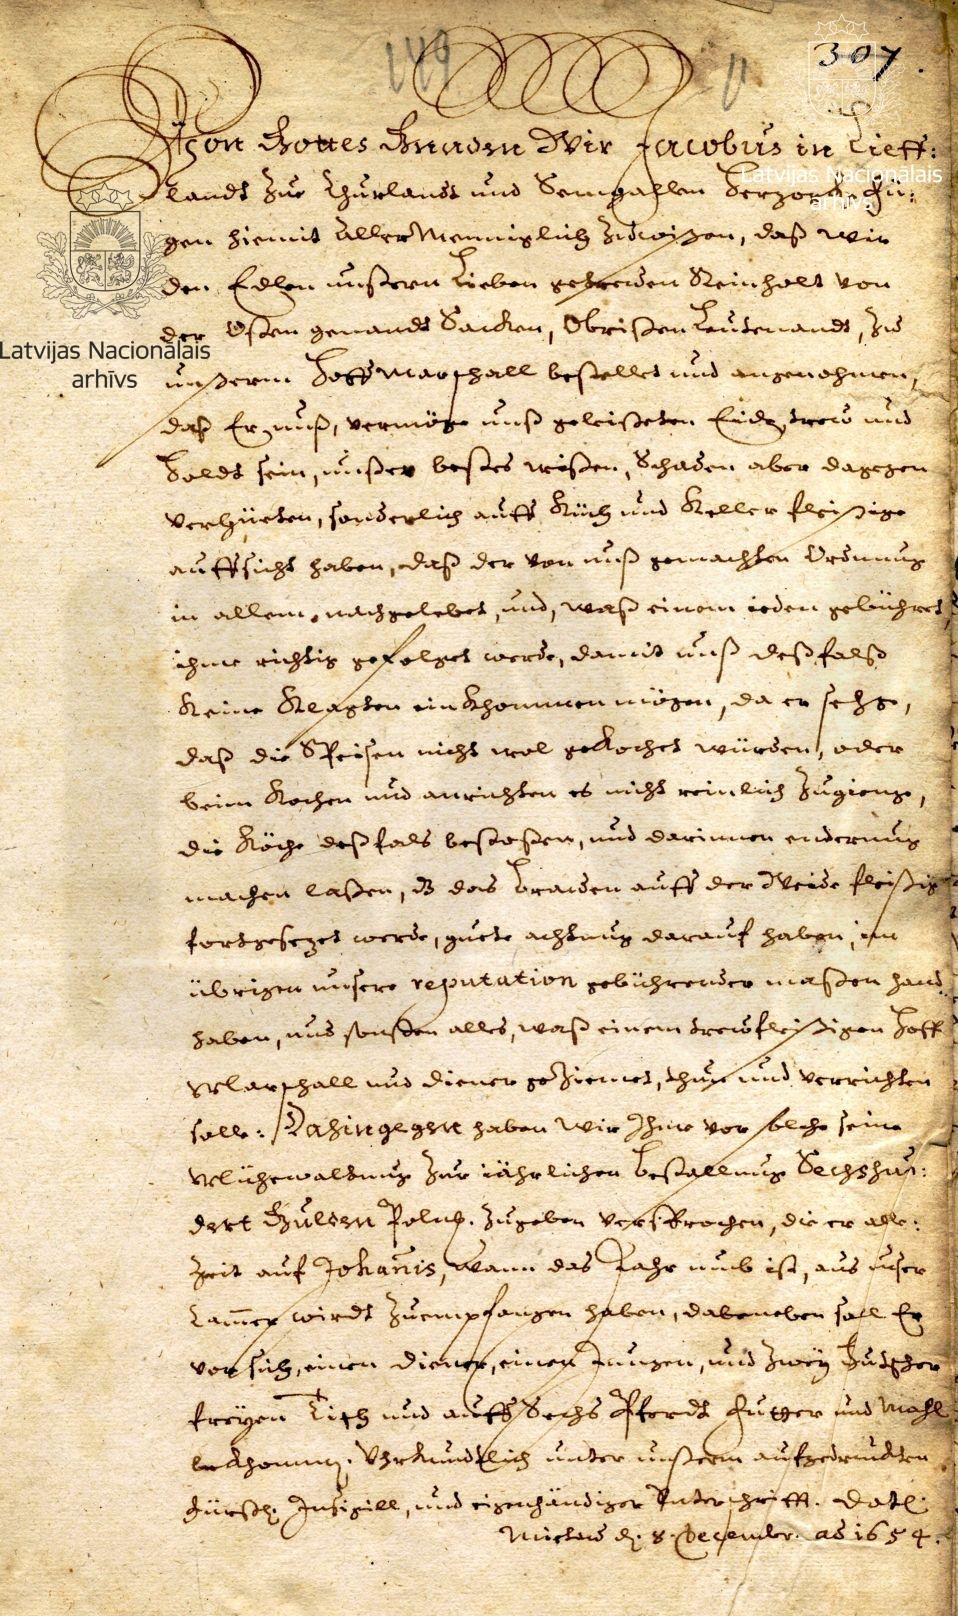 149
307.
Von Gottes Gnaden Wir Jacobus in Lieff:
landt Zue Churlandt und Semgallen Herzog
gen hiemit Aller Menniglich Zuwißen, daß wir
den Edlen unßern Lieben getrewen Reinholt von
der Osten genandt Sacken, Obristen Leutenandt, Zu
unßerm Hoff Marschall bestellet und angenohmen,
daß Er unß, vermöge unß geleisteten Eide, trew und
Holdt sein, unßer bestes wißen, Schaden aber dagegen
verhüeten, sonderlich auff Küch und Keller fleißige
auffsicht haben, daß der von unß gemachten Ordnung
in allem nachgelebet, und, waß einem ieden gebühret,
ihme richtig gefolget werde, damit unß deßfalß
Keine Klagten einkhommen mögen, da er sehge,
daß die Speisen nicht wol gekochet würden, oder
beim Kochen und anrichten es nicht reinlich Zugienge,
die Köche deßfals und darinnen enderung
machen laßen, das auff der Weide fleißig
fortgesezet werde, guete achtung darauf haben, im
übrigen unsere reputation gebührender maßen hand
haben, und sonsten alles, waß einem trewfleißigen Hoff
Marschall und diener geziemet, thun und verrichten
solle: Dahingegen haben wir Ihme vor solche seine
Mühewaltung Zur iährlichen bestallung Sechshun:
dert Gulden Polnß. Zugeben versprochen, die er alle:
Zeit auf Johannis, wann das Jahr umb ist, aus unser
Cammer wirdt Zuempfangen haben, dabeneben soll Er
vor sich, einen diener, einen Jungen, und Zwey Kutscher
freyen Tisch und auff Sechs Pferdt Futter und Mahl
bekhommen. Uhrkundtlich unter unßerm aufgedruckten
Fürstl. Insigill, und eigenhändiger Unterschrifft. Datl:
Mietaw d. 8. Decembr. aō 1654.
Latvijas Nacionālais
arhīvs
Latvijas Nacionālais
arhīvs